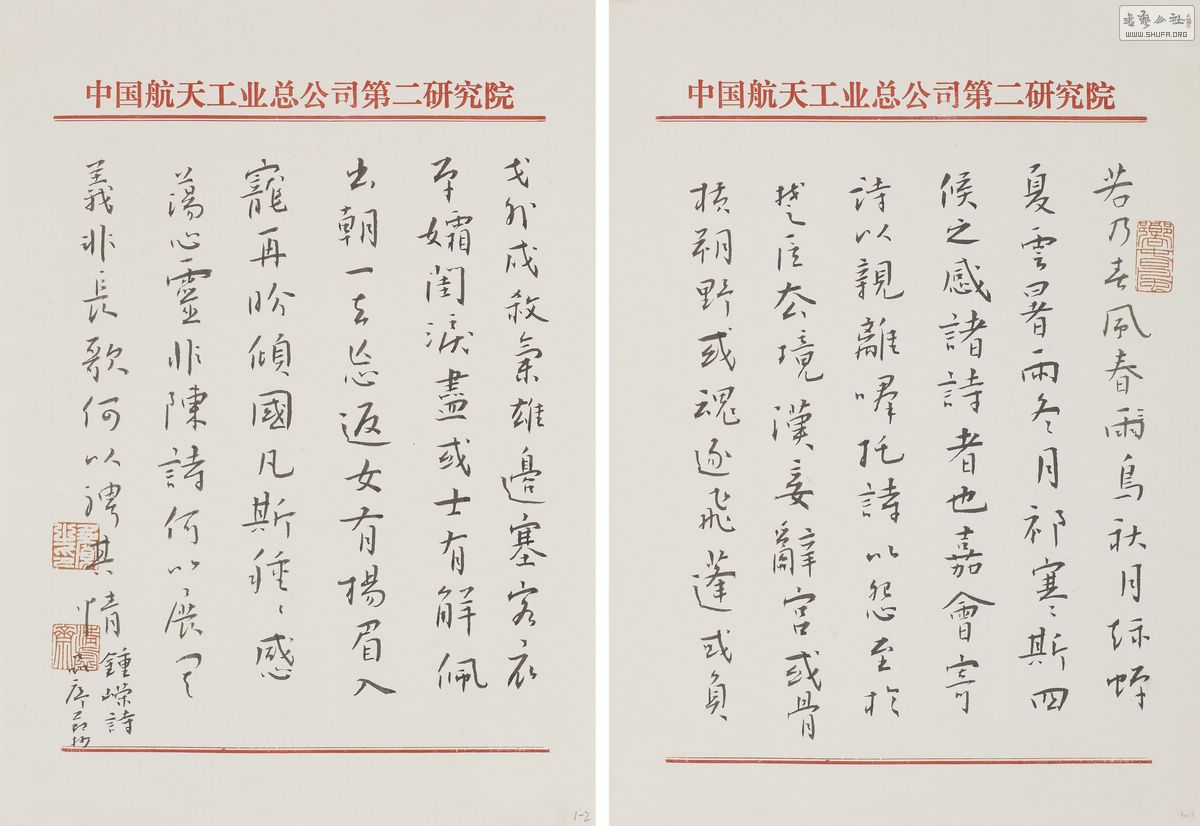 书艺公社
WWW.SHUFA.ORG
中国航天工业总公司第二研究院
若乃春風春鳥秋月秋蟬
夏雲暑雨冬月祁寒斯四
候之感諸詩者也嘉會寄
詩以親離群托詩以怨至於
楚臣去境漢妾辭宮或骨
横朔野或魂逐飛蓬或負
中国航天工业总公司第二研究院
戈外戍殺氣雄邊塞客衣
單孀閨淚盡或士有解佩
出朝一去忘返女有揚眉入
寵再盼傾國凡斯種〻感
蕩心靈非陳詩何以展其
義非長歌何以騁其情
鍾嶸詩
品序節抄
1-2